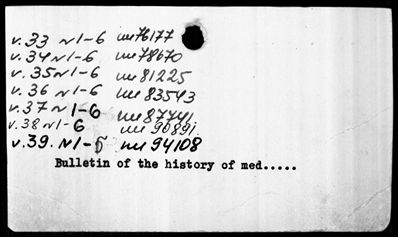 v.33 N1-6 ии76177
v.34 N1-6 ии78670
v.35 N1-6 ии81225
v.36 N1-6 ии83543
v.37 N1-6 ии87741
v.38 N1-6 ии90891
v.39. N1-5 ии94108
Bulletin of the history of med.....